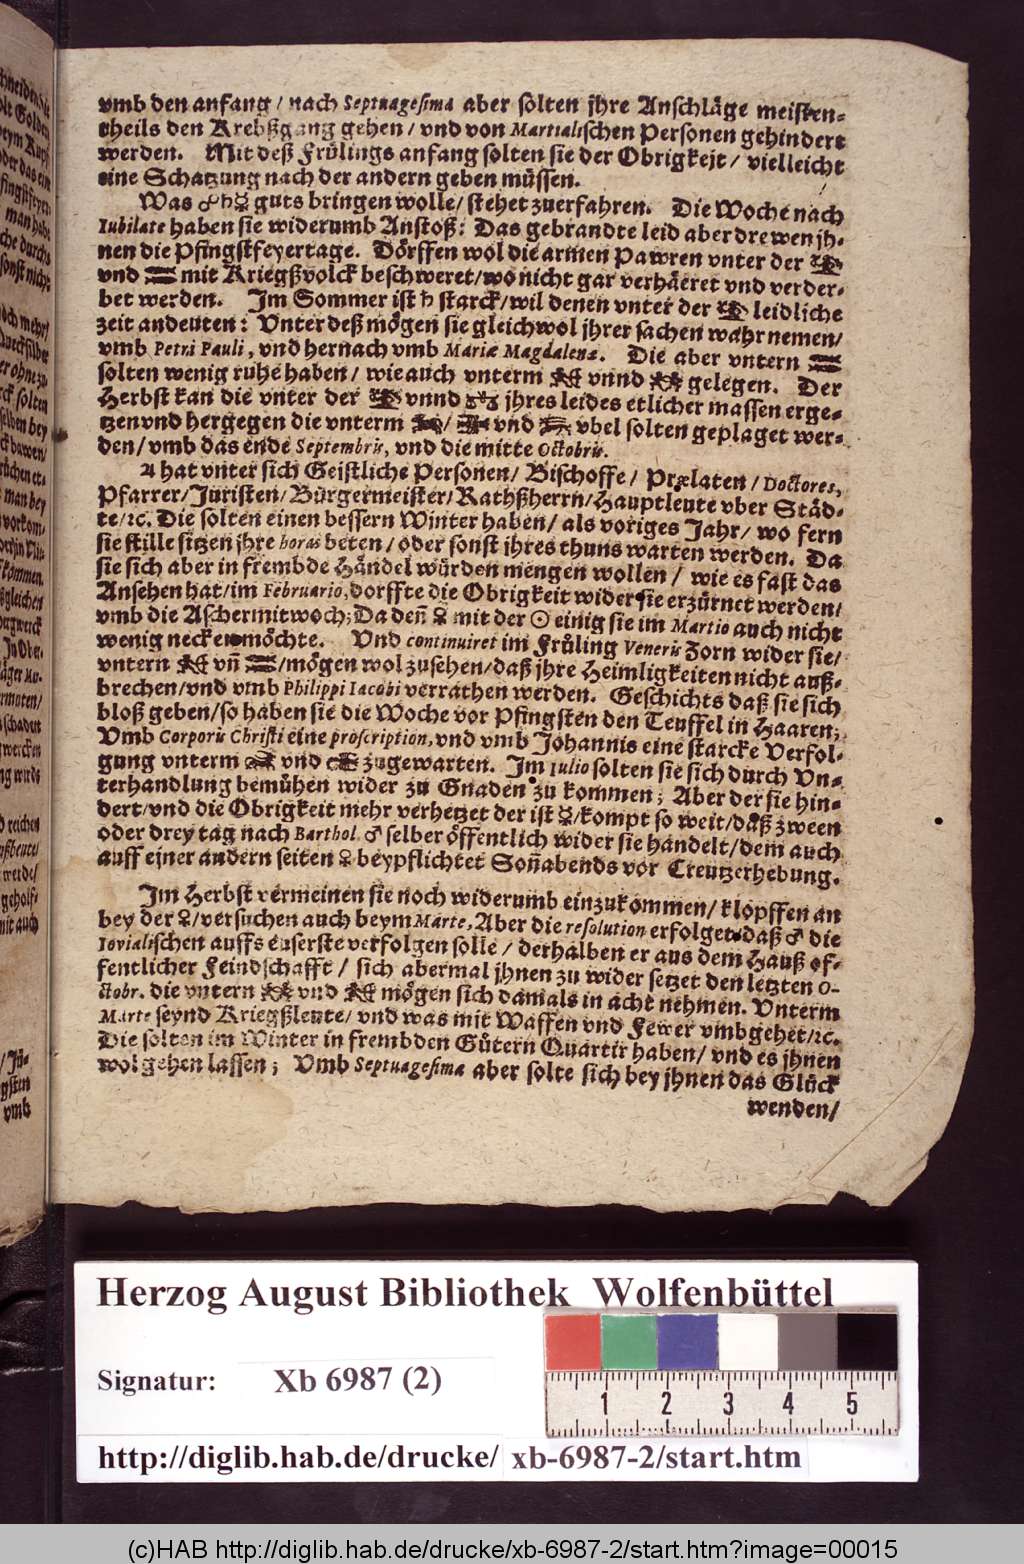 vmb den anfang / nach Septuagesima aber solten jhre Anschläge meisten-
theils den Krebßgang gehen / vnd von Martialischen Personen gehindert
werden. Mit deß Frůlings anfang solten sie der Obrigkeit / vielleicht
eine Schatzung nach der andern geben müssen.
Was ☍♄☿ guts bringen wolle / stehet zuerfahren. Die Woche nach
Iubilate haben sie widerumb Anstoß: Das gebrandte leid aber drewen jh-
nen die Pfingstfeyertage. Dörffen wol die armen Pawren vnter der
vnd mit Kriegßvolck beschweret / wo nicht gar verhäeret vnd verder-
bet werden. Im Sommer ist ♄ starck / wil denen vnter der leidliche
zeit andeuten: Vnter deß mögen sie gleichwol jhrer sachen wahrnemen /
vmb Petri Pauli, vnd hernach vmb Mariæ Magdalenæ. Die aber vntern
solten wenig ruhe haben / wie auch vnterm vnnd gelegen. Der
Herbst kan die vnter der vnnd jhres leides etlicher massen erge-
tzen vnd hergegen die vnterm / vnd vbel solten geplaget wer-
den / vmb das ende Septembris, vnd die mitte Octobris.
♃ hat vnter sich Geistliche Personen / Bischoffe / Prælaten / Doctores,
Pfarrer / Juristen / Bürgermeister / Rathßherrn / Hauptleute vber Städ-
te / ꝛc. Die solten einen bessern Winter haben / als voriges Jahr / wo fern
sie stille sitzen jhre horas beten / oder sonst jhres thuns warten werden. Da
sie sich aber in frembde Händel würden mengen wollen / wie es fast das
Ansehen hat / im Februario, dorffte die Obrigkeit wider sie erzürnet werden /
vmb die Aschermitwoch; Da deñ ♀ mit der ☉ einig sie im Martio auch nicht
wenig necken möchte. Vnd continuiret im Frůling Veneris Zorn wider sie /
vntern vñ / mögen wol zusehen / daß jhre Heimligkeiten nicht auß-
brechen / vnd vmb Philippi Iacobi verrathen werden. Geschichts daß sie sich
bloß geben / so haben sie die Woche vor Pfingsten den Teuffel in Haaren;
Vmb Corporis Christi eine proscription, vnd vmb Johannis eine starcke Verfol-
gung vnterm vnd zugewarten. Im Iulio solten sie sich durch Vn-
terhandlung bemühen wider zu Gnaden zu kommen; Aber der sie hin-
dert / vnd die Obrigkeit mehr verhetzet der ist ☿ / kompt so weit / daß zween
oder drey tag nach Barthol. ♂ selber öffentlich wider sie handelt / dem auch
auff einer andern seiten ♀ beypflichtet Soñabends vor Creutzerhebung.
Im Herbst vermeinen sie noch widerumb einzukommen / klopffen an
bey der ♀ / versuchen auch beym Marte, Aber die resolution erfolget daß ♂ die
Iovialischen auffs euserste verfolgen solle / derhalben er aus dem Hauß of-
fentlicher Feindschafft / sich abermal jhnen zu wider setzet den letzten O-
ctobr. die vntern vnd mögen sich damals in acht nehmen. Vnterm
Marte seynd Kriegßleute / vnd was mit Waffen vnd Fewer vmbgehet / ꝛc.
Die solten im Winter in frembden Gůtern Quartir haben / vnd es jhnen
wol gehen lassen; Vmb Septuagesima aber solte sich bey jhnen das Glůck
wenden /
Herzog August Bibliothek Wolfenbüttel
Signatur: Xb 6987 (2)
1 2 3 4 5
http://diglib.hab.de/drucke/ xb-6987-2/start.htm
(c)HAB http://diglib.hab.de/drucke/xb-6987-2/start.htm?image=00015